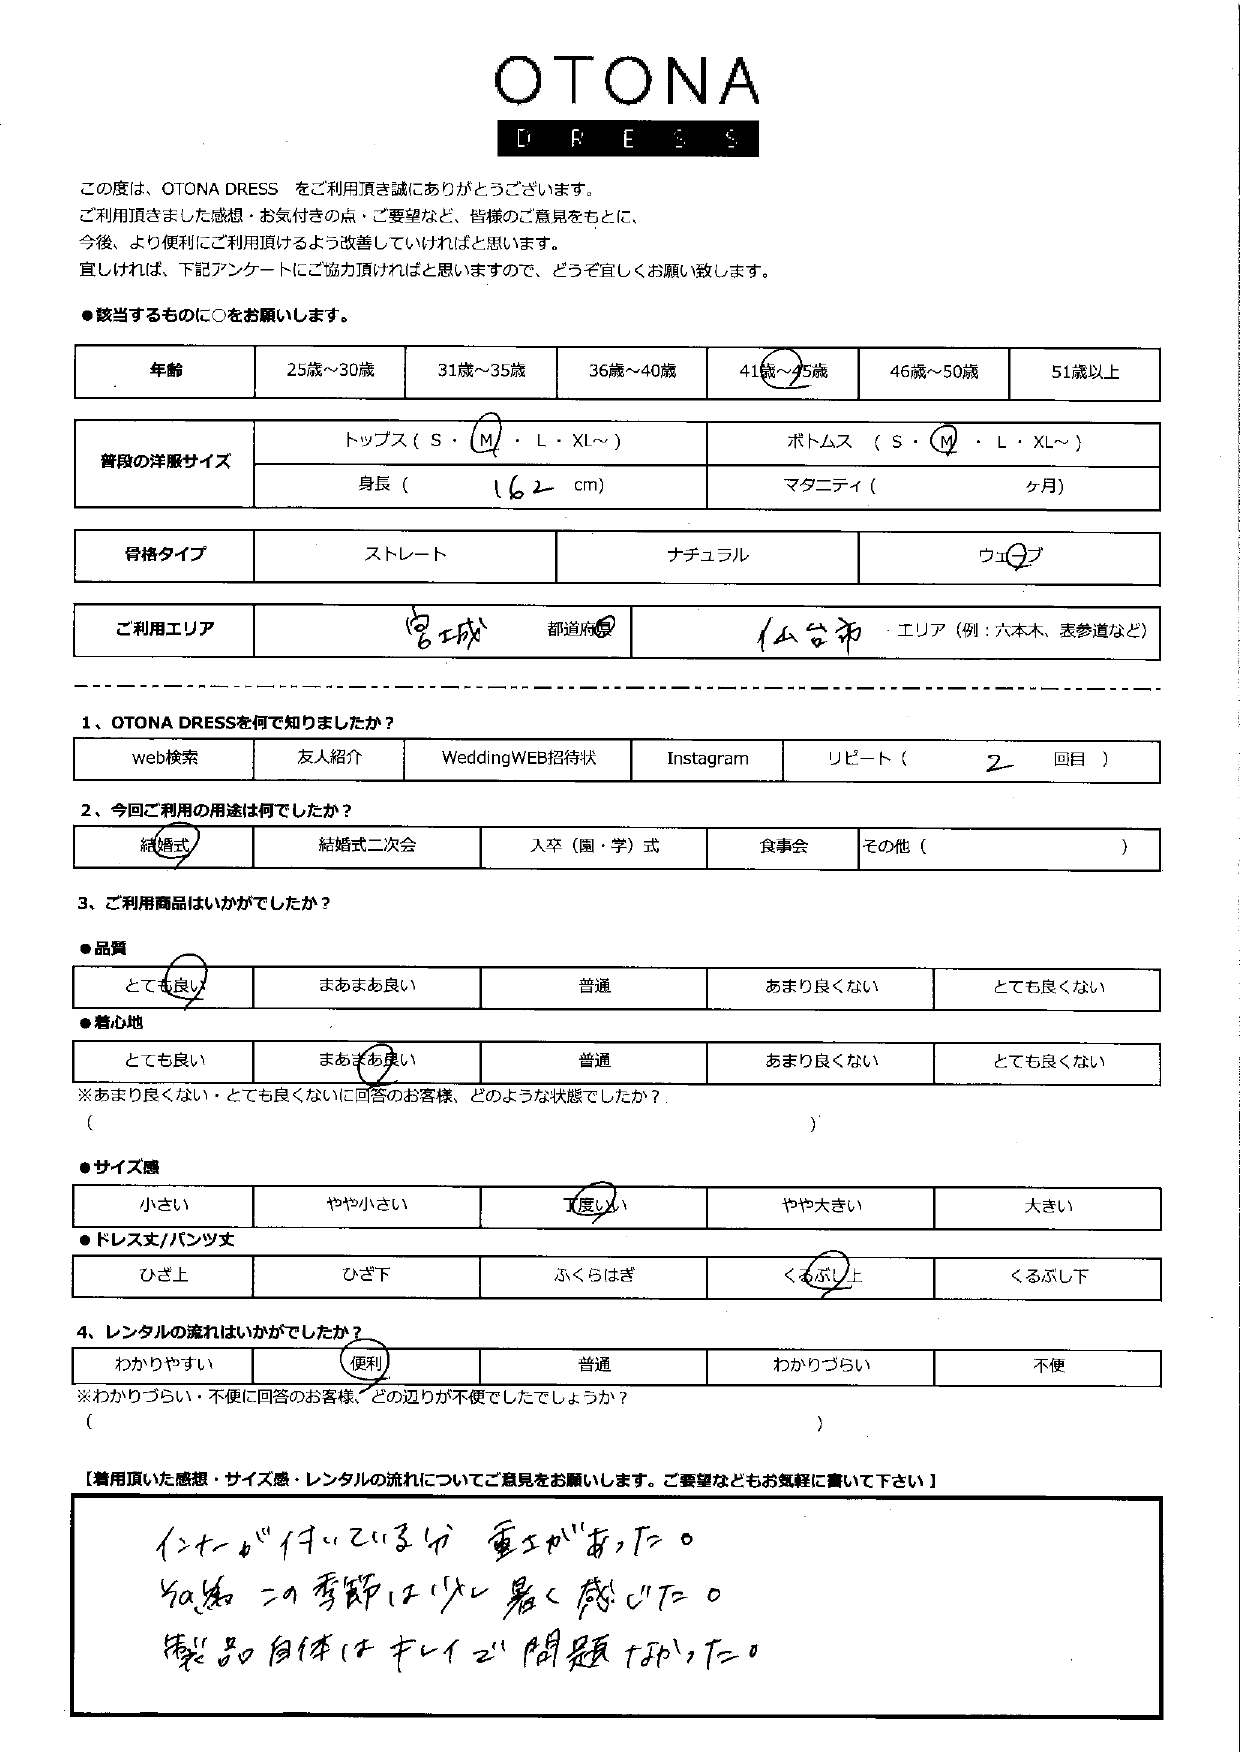 OTONA
DRESS
この度は、OTONA DRESS をご利用頂き誠にありがとうございます。
ご利用頂きました感想・お気付きの点・ご要望など、皆様のご意見をもとに、
今後、より便利にご利用頂けるよう改善していければと思います。
宜しければ、下記アンケートにご協力頂ければと思いますので、どうぞ宜しくお願い致します。
●該当するものに○をお願いします。
年齢 25歳～30歳 31歳～35歳 36歳～40歳 41歳～45歳 46歳～50歳 51歳以上
普段の洋服サイズ トップス ( S ・ M ・ L ・ XL～ ) ボトムス ( S ・ M ・ L ・ XL～ )
身長 ( 162 cm) マタニティ ( ヶ月)
骨格タイプ ストレート ナチュラル ウェーブ
ご利用エリア 宮城 都道府県 仙台市 エリア（例：六本木、表参道など）
1、OTONA DRESSを何で知りましたか？
web検索 友人紹介 WeddingWEB招待状 Instagram リピート ( 2 回目 )
2、今回ご利用の用途は何でしたか？
結婚式 結婚式二次会 入卒（園・学）式 食事会 その他 ( )
3、ご利用商品はいかがでしたか？
●品質
とても良い まあまあ良い 普通 あまり良くない とても良くない
●着心地
とても良い まあまあ良い 普通 あまり良くない とても良くない
※あまり良くない・とても良くないに回答のお客様、どのような状態でしたか？
( )
●サイズ感
小さい やや小さい 丁度いい やや大きい 大きい
●ドレス丈/パンツ丈
ひざ上 ひざ下 ふくらはぎ くるぶし上 くるぶし下
4、レンタルの流れはいかがでしたか？
わかりやすい 便利 普通 わかりづらい 不便
※わかりづらい・不便に回答のお客様、どの辺りが不便でしたでしょうか？
( )
【着用頂いた感想・サイズ感・レンタルの流れについてご意見をお願いします。ご要望などもお気軽に書いて下さい】
インナーが付いている分 重さがあった。
その為 この季節は少し暑く感じた。
製品自体はキレイで問題なかった。